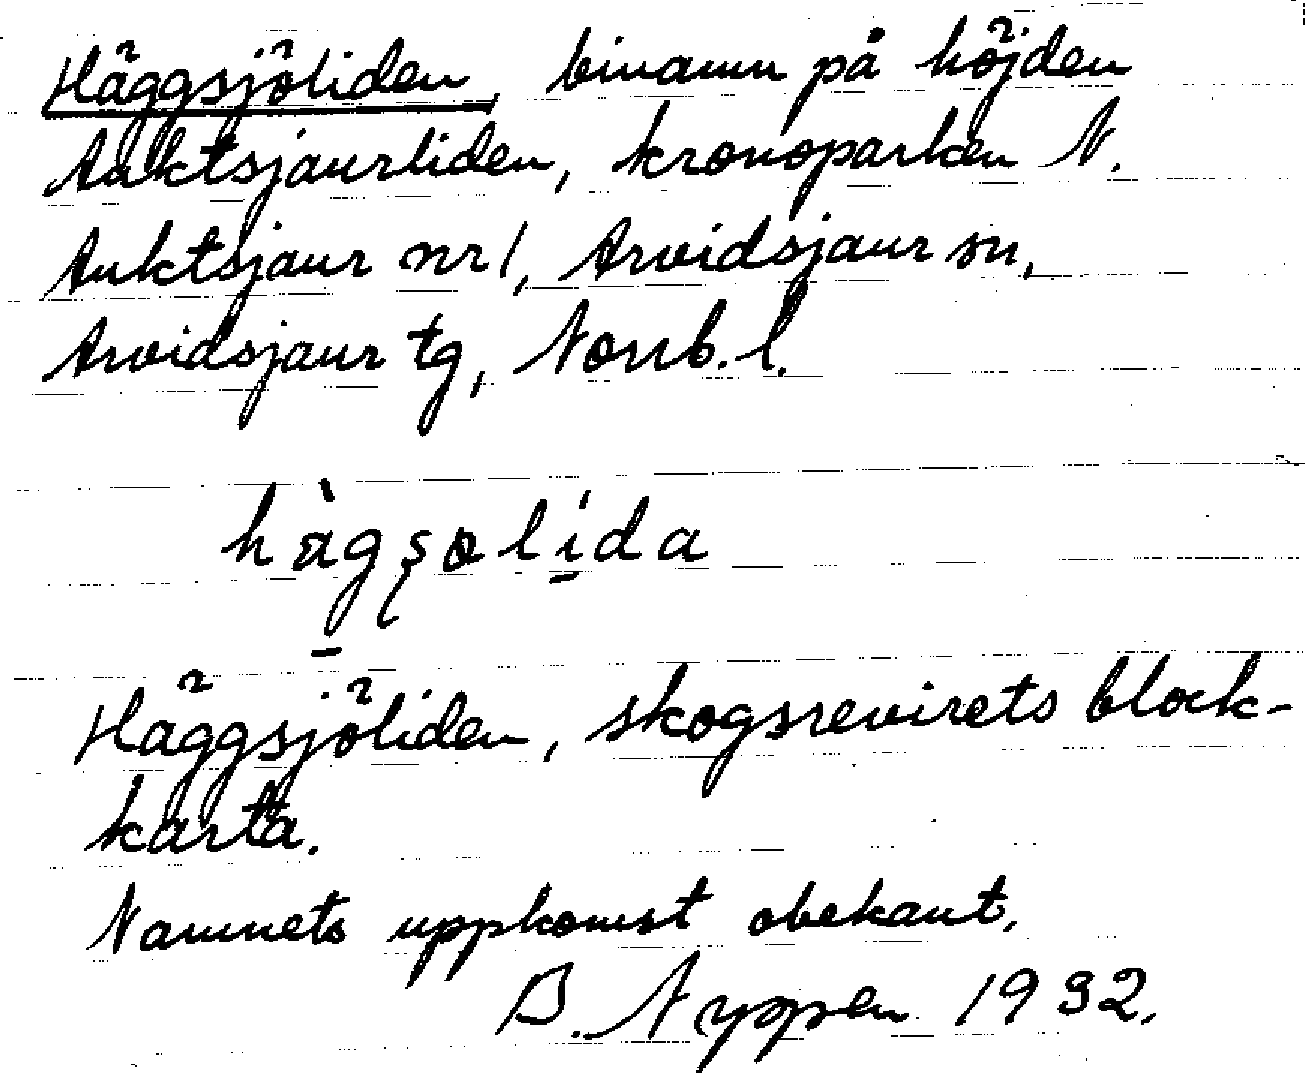 Häggsjöliden, binamn på höjden
Auktsjaurliden, kronoparken N.
Auktsjaur nr 1, Arvidsjaur sn,
Arvidsjaur tg, Norrb. l.
hàgsolida
Häggsjöliden, skogsrevirets block-
karta.
Namnets uppkomst obekant.
B. Nyppen 1932.